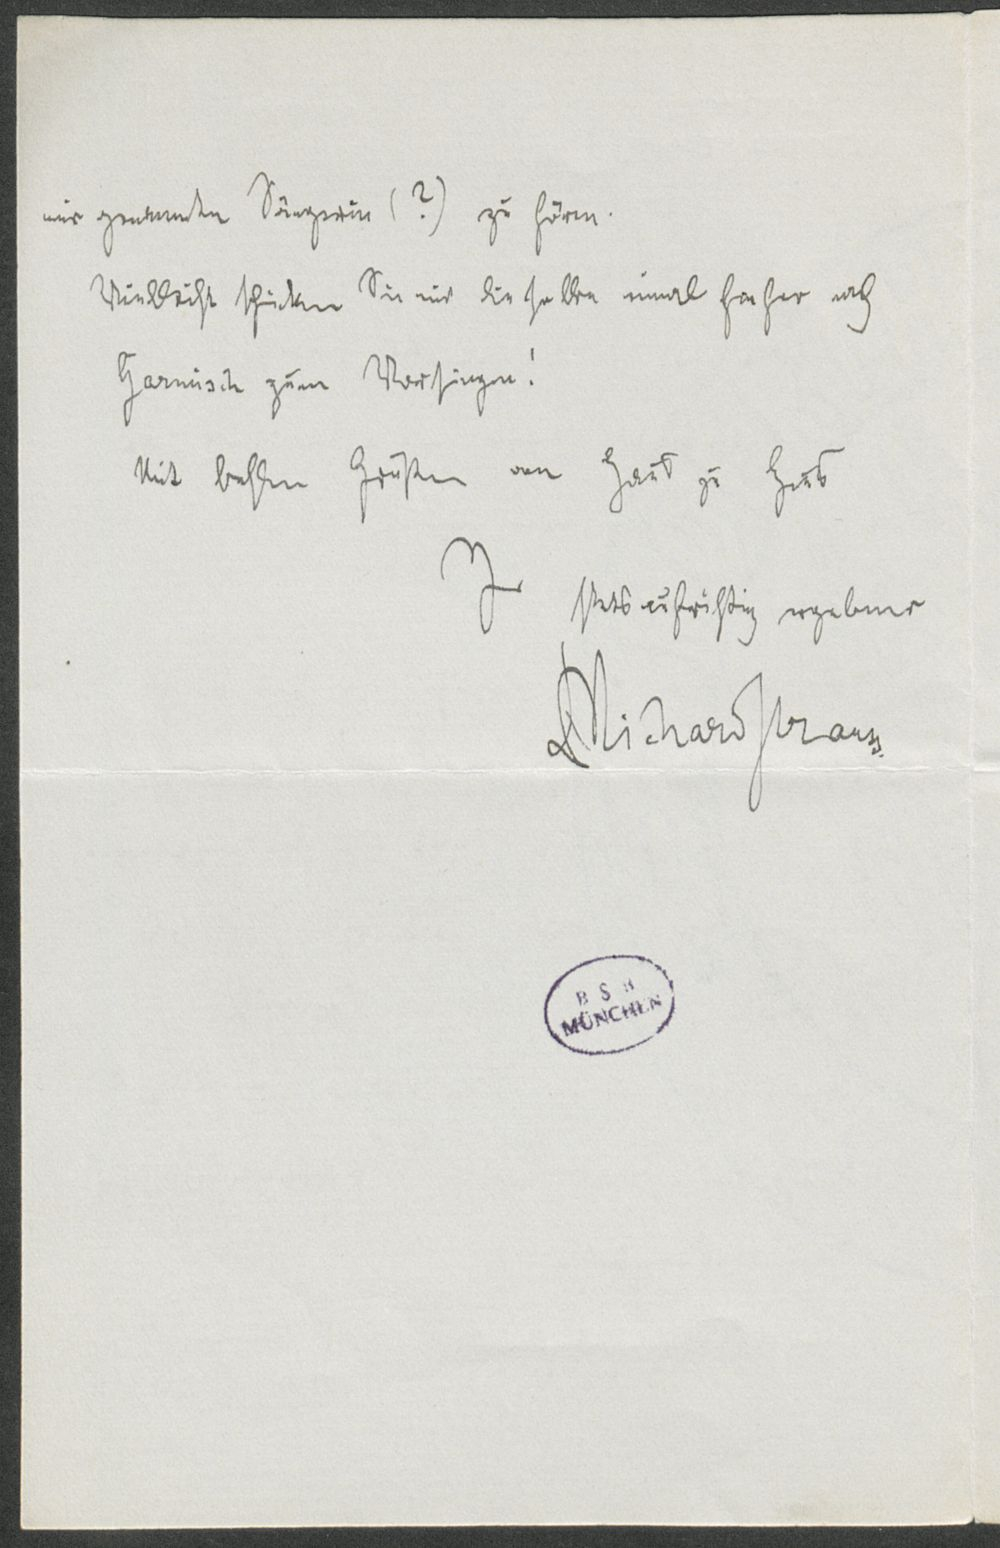 mir genannten Sängerin (?) zu hören.
Vielleicht schicken Sie mir dieselbe einmal hieher nach
Garmisch zum Vorsingen!
Mit besten Grüßen von Haus zu Haus
Ihr stets aufrichtig ergebener
DRichard Strauss.
B S B
MÜNCHEN